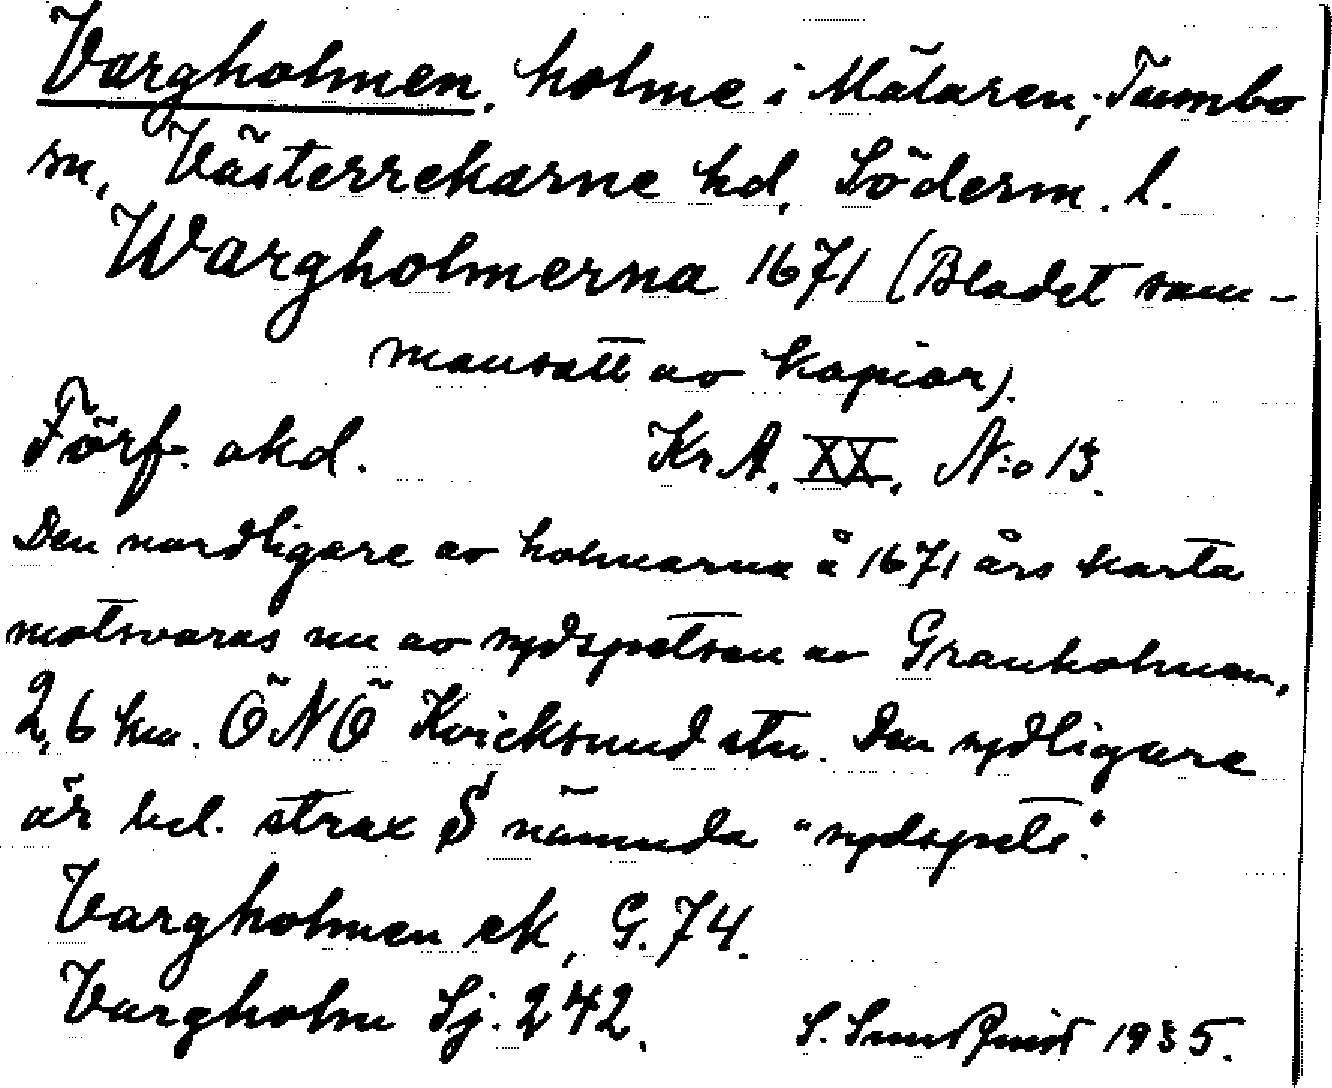 Vargholmen, holme i Mälaren, Tumbo
sn, Västerrekarne hd, Söderm. l.
Wargholmerna 1671 (Bladet sam-
mansatt av kopior).
Förf. okd. Kr.A. XX. N:o 13.
Den nordligare av holmarna å 1671 års karta
motsvaras nu av sydspetsen av Granholmen,
2,6 km. ÖNÖ Kvicksund stn. Den sydligare
är bel. strax S nämnda "sydspets".
Vargholmen ek, G. 74.
Vargholm Sj. 242. S. Sundquist 1935.